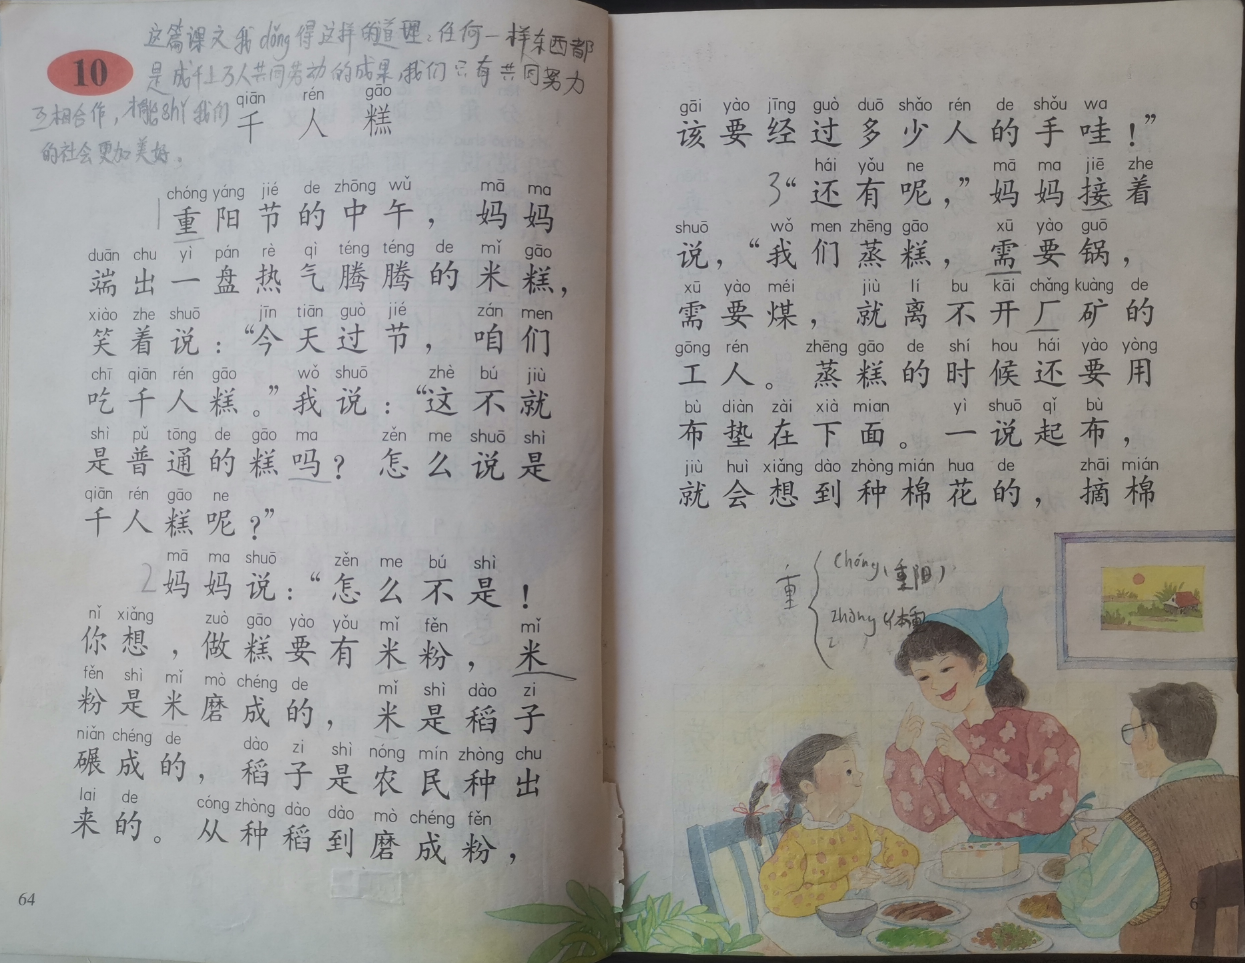 10
这篇课文我dǒng得这样的道理：任何一样东西都
是成千上万人共同劳动的成果，我们只有共同努力
互相合作，才能shǐ我们
的社会更加美好。
qiān rén gāo
千人糕
chóng yáng jié de zhōng wǔ mā ma
1重阳节的中午，妈妈
duān chu yì pán rè qì téng téng de mǐ gāo
端出一盘热气腾腾的米糕，
xiào zhe shuō jīn tiān guò jié zán men
笑着说：“今天过节，咱们
chī qiān rén gāo wǒ shuō zhè bú jiù
吃千人糕。”我说：“这不就
shì pǔ tōng de gāo ma zěn me shuō shì
是普通的糕吗？怎么说是
qiān rén gāo ne
千人糕呢？”
mā ma shuō zěn me bú shì
2妈妈说：“怎么不是！
nǐ xiǎng zuò gāo yào yǒu mǐ fěn mǐ
你想，做糕要有米粉，米
fěn shì mǐ mò chéng de mǐ shì dào zi
粉是米磨成的，米是稻子
niǎn chéng de dào zi shì nóng mín zhòng chu
碾成的，稻子是农民种出
lai de cóng zhòng dào dào mò chéng fěn
来的。从种稻到磨成粉，
64
gāi yào jīng guò duō shǎo rén de shǒu wa
该要经过多少人的手哇！”
hái yǒu ne mā ma jiē zhe
3“还有呢，”妈妈接着
shuō wǒ men zhēng gāo xū yào guō
说，“我们蒸糕，需要锅，
xū yào méi jiù lí bu kāi chǎng kuàng de
需要煤，就离不开厂矿的
gōng rén zhēng gāo de shí hou hái yào yòng
工人。蒸糕的时候还要用
bù diàn zài xià mian yì shuō qǐ bù
布垫在下面。一说起布，
jiù huì xiǎng dào zhòng mián hua de zhāi mián
就会想到种棉花的，摘棉
chóng（重阳）
重
zhòng（体重